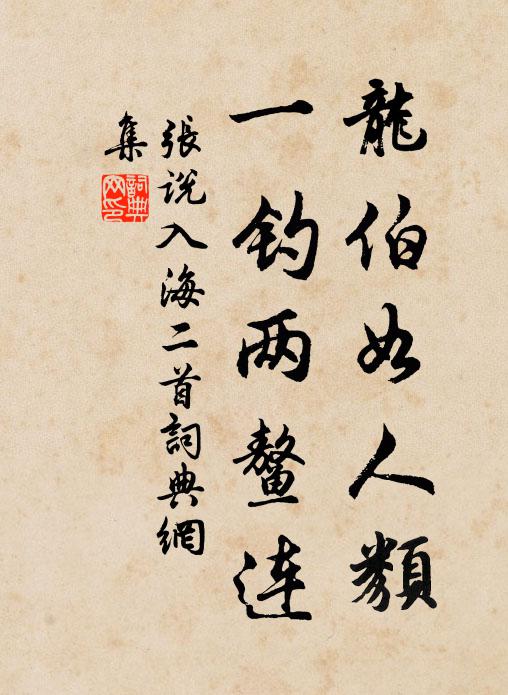 龍伯如人類
一钓两鳌连
張说入海二首詞典網
集
詞典网印